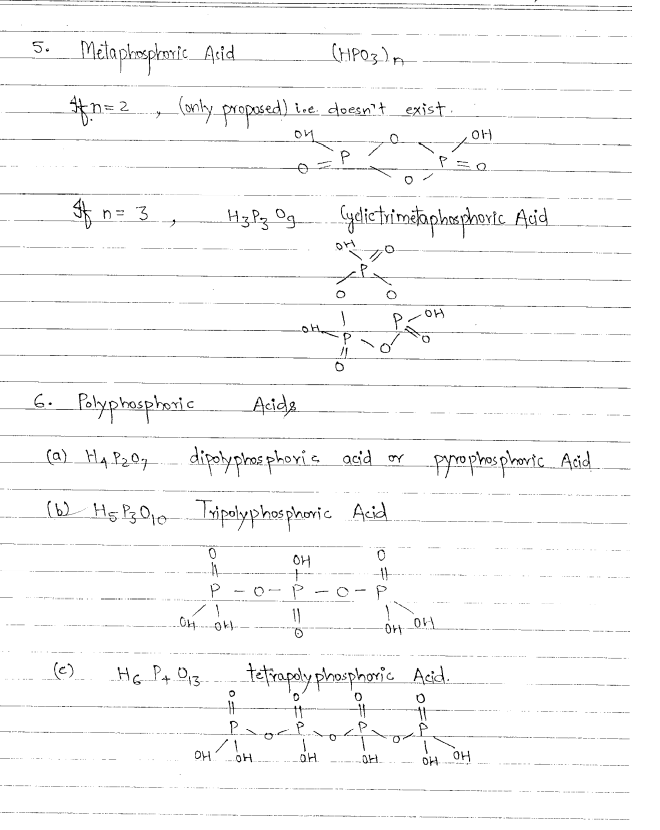 5. Metaphosphoric Acid (HPO3)n
If n=2 , (only proposed) i.e. doesn't exist.
OH O OH
O = P P = O
O
If n = 3 , H3P3O9 Cyclictrimetaphosphoric Acid
OH O
P
O O
P OH
OH P O O
O
6. Polyphosphoric Acids
(a) H4P2O7 dipolyphosphoric acid or pyrophosphoric Acid
(b) H5P3O10 Tripolyphosphoric Acid
O OH O
P - O - P - O - P
OH OH O OH OH
(c) H6P4O13 tetrapolyphosphoric Acid.
O O O O
P O P O P O P
OH OH OH OH OH OH